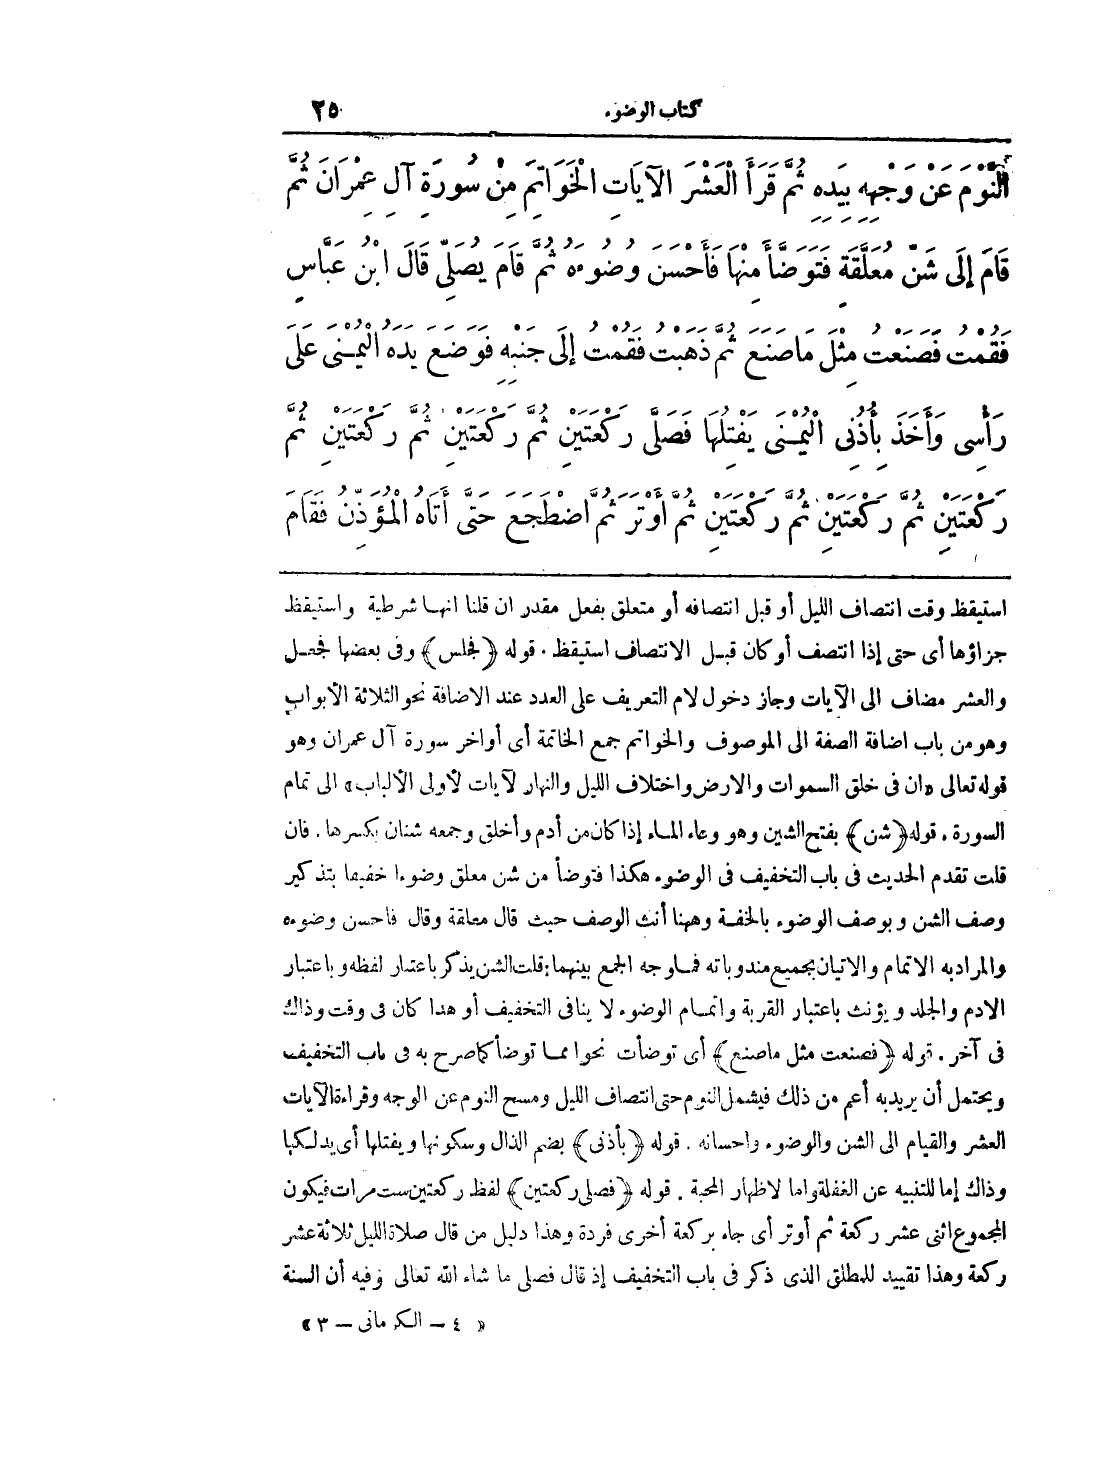 كتاب الوضوء ٢٥
النَّوْمَ عَنْ وَجْهِهِ بِيَدِهِ ثُمَّ قَرَأَ الْعَشْرَ الآيَاتِ الْخَوَاتِمَ مِنْ سُورَةِ آلِ عِمْرَانَ ثُمَّ
قَامَ إِلَى شَنٍّ مُعَلَّقَةٍ فَتَوَضَّأَ مِنْهَا فَأَحْسَنَ وُضُوءَهُ ثُمَّ قَامَ يُصَلِّي قَالَ ابْنُ عَبَّاسٍ
فَقُمْتُ فَصَنَعْتُ مِثْلَ مَاصَنَعَ ثُمَّ ذَهَبْتُ فَقُمْتُ إِلَى جَنْبِهِ فَوَضَعَ يَدَهُ الْيُمْنَى عَلَى
رَأْسِى وَأَخَذَ بِأُذُنِى الْيُمْنَى يَفْتِلُهَا فَصَلَّى رَكْعَتَيْنِ ثُمَّ رَكْعَتَيْنِ ثُمَّ رَكْعَتَيْنِ ثُمَّ
رَكْعَتَيْنِ ثُمَّ رَكْعَتَيْنِ ثُمَّ رَكْعَتَيْنِ ثُمَّ أَوْتَرَ ثُمَّ اضْطَجَعَ حَتَّى أَتَاهُ الْمُؤَذِّنُ فَقَامَ
استيقظ وقت انتصاف الليل أو قبل انتصافه أو متعلق بفعل مقدر ان قلنا انها شرطية واستيقظ
جزاؤها أى حتى إذا انتصف أوكان قبل الانتصاف استيقظ . قوله ﴿فجلس﴾ وفى بعضها فجعل
والعشر مضاف الى الآيات وجاز دخول لام التعريف على العدد عند الاضافة نحو الثلاثة الأبواب
وهو من باب اضافة الصفة الى الموصوف والخواتم جمع الخاتمة أى أواخر سورة آل عمران وهو
قوله تعالى «ان فى خلق السموات والارض واختلاف الليل والنهار لآيات لأولى الألباب» الى تمام
السورة . قوله ﴿شن﴾ بفتح الشين وهو وعاء الماء إذا كان من أدم وأخلق وجمعه شنان بكسرها . فان
قلت تقدم الحديث فى باب التخفيف فى الوضوء هكذا فتوضأ من شن معلق وضوءا خفيفا بتذكير
وصف الشن و بوصف الوضوء بالخفة وههنا أنث الوصف حيث قال معلقة وقال فاحسن وضوءه
والمراد به الاتمام والاتيان بجميع مندوباته فما وجه الجمع بينهما: قلت الشن يذكر باعتبار لفظه و باعتبار
الادم والجلد و يؤنث باعتبار القربة واتمام الوضوء لا ينافى التخفيف أو هذا كان فى وقت وذاك
فى آخر . قوله ﴿فصنعت مثل ماصنع﴾ أى توضأت نحوا مما توضأ كما صرح به فى باب التخفيف
ويحتمل أن يريد به أعم من ذلك فيشمل النوم حتى انتصاف الليل ومسح النوم عن الوجه وقراءة الآيات
العشر والقيام الى الشن والوضوء واحسانه . قوله ﴿بأذنى﴾ بضم الذال وسكونها و يفتلها أى يدلكها
وذلك إما للتنبيه عن الغفلة واما لاظهار المحبة . قوله ﴿فصلى ركعتين﴾ لفظ ركعتين ست مرات فيكون
المجموع اثنى عشر ركعة ثم أوتر أى جاء بركعة أخرى فردة وهذا دليل من قال صلاة الليل ثلاثة عشر
ركعة وهذا تقييد للمطلق الذى ذكر فى باب التخفيف إذ قال فصلى ما شاء الله تعالى وفيه أن السنة
« ٤ - الكرمانى - ٣ »